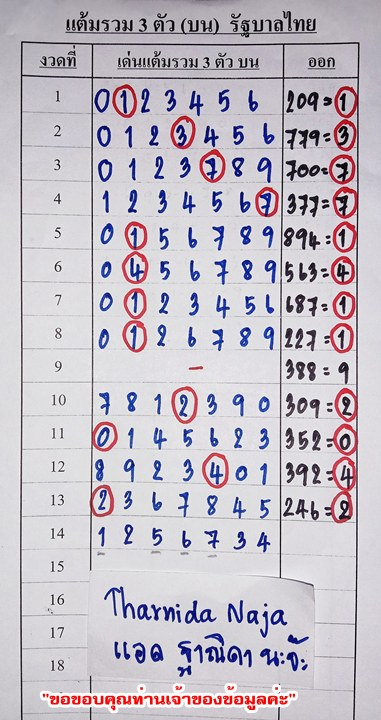 แต้มรวม 3 ตัว (บน)  รัฐบาลไทย
งวดที่ เด่นแต้มรวม 3 ตัว บน ออก
1 0 1 2 3 4 5 6 209=1
2 0 1 2 3 4 5 6 779=3
3 0 1 2 3 7 8 9 700=7
4 1 2 3 4 5 6 7 377=7
5 0 1 5 6 7 8 9 894=1
6 0 4 5 6 7 8 9 563=4
7 0 1 2 3 4 5 6 687=1
8 0 1 2 6 7 8 9 227=1
9 - 388=9
10 7 8 1 2 3 9 0 309=2
11 0 1 4 5 6 2 3 352=0
12 8 9 2 3 4 0 1 392=4
13 2 3 6 7 8 4 5 246=2
14 1 2 5 6 7 3 4
15
16
17
18
Tharnida Naja
แอด ฐาณิดา นะจ๊ะ
"ขอขอบคุณท่านเจ้าของข้อมูลค่ะ"